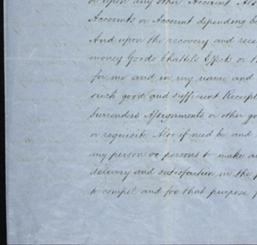 or upon any other Account
Accounts or Account depending be
And upon the recovery and rece
money Goods Chattels Effects or
for me and in my name and
such good and sufficient Receipt
Surrenders Assignments or other
or requisite Also if need be and
my person or persons to make
delivery and satisfaction in the
to compel and for that purpose